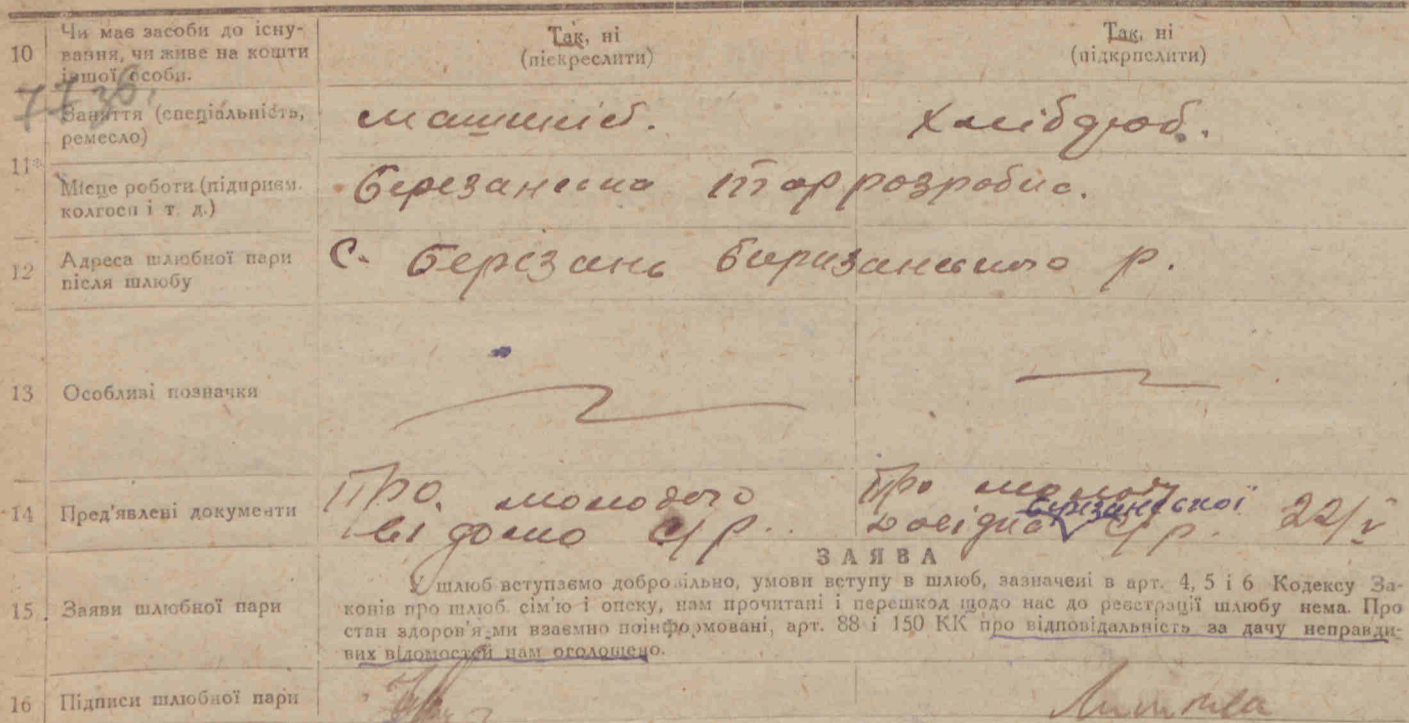 10 Чи має засоби до існу-
вання, чи живе на кошти
іншої особи.
Так, ні
(піекреслити)
Так, ні
(підкрпслити)
11 Заняття (спеціальність,
ремесло)
машиніст.
Хлібороб.
Місце роботи (підприєм.
колгосп і т. д.)
Березанська розробка.
12 Адреса шлюбної пари
після шлюбу
с. Берізань р.
13 Особливі позначки
14 Пред'явлені документи
Про молодого
відомо с/р.
Про молоду
довідка Березанської с/р. 22/V
ЗАЯВА
15 Заяви шлюбної пари
У шлюб вступаємо добровільно, умови вступу в шлюб, зазначені в арт. 4, 5 і 6 Кодексу За-
конів про шлюб, сім'ю і опску, нам прочитані і перешкод щодо нас до реєстрації шлюбу нема. Про
стан здоров'я ми взаємно поінформовані, арт. 88 і 150 КК про відповідальність за дачу неправди-
вих відомостей нам оголошено.
16 Підписи шлюбної пари